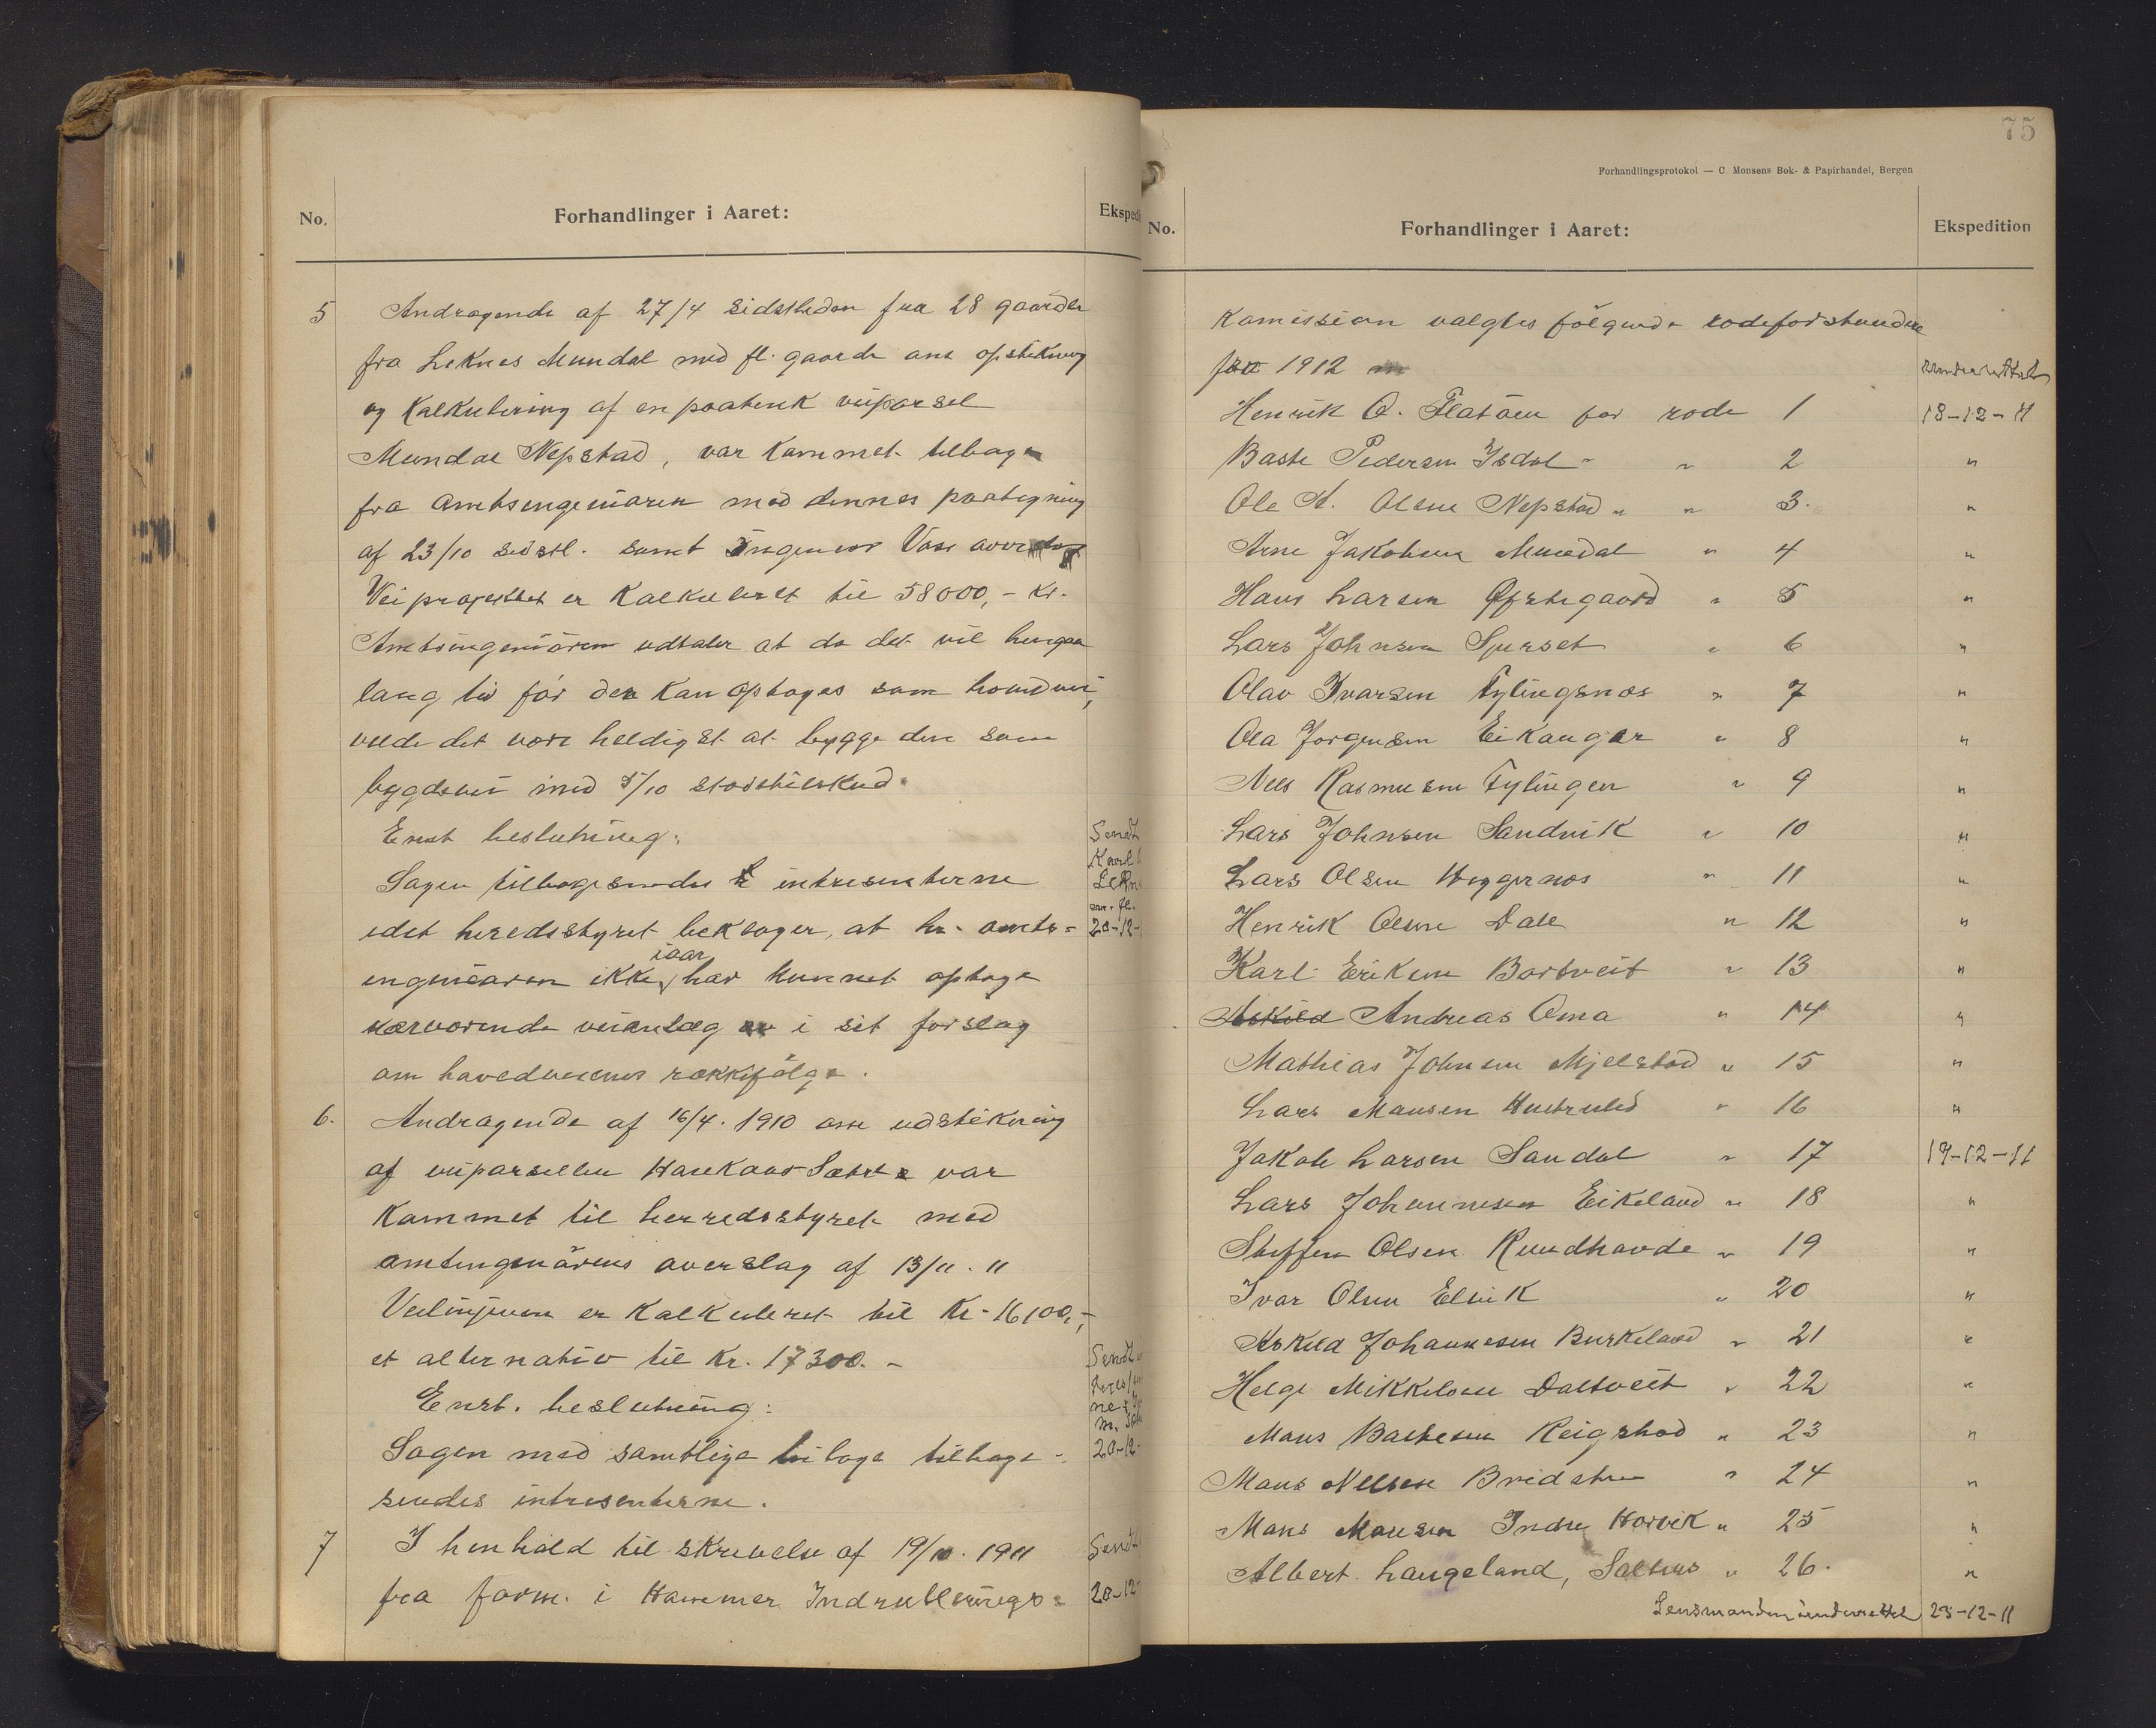 No.
Forhandlinger i Aaret:
5 Andragende af 27/4 sidstleden fra 28 gaardbr
fra Leknes Mundal med fl. gaarde ans opstikning
og Kalkulering af en paatenk veiparsel
Mundal Nepstad, var Kommet tilbage
fra amtsingeniøren med dennes paategning
af 23/10 sidstl. samt Ingeniør Vass
Veiprojektet er Kalkuleret til 58000,- Kr.
Amtsingeniøren udtaler at da det vil hengaa
lang tid før den Kan optages som hovedvei,
vilde det være heldigst at bygge den som
bygdevei med 5/10 statstilskud.
Enst beslutning:
Sagen tilbagesendes intresenterne
idet heredsstyret beklager, at hr. amts=
ingeniøren ikke iaar har kunnet optage
nærværende veianlæg i sit forslag
om hovedveienes rækkefølge.
6. Andragende af 16/4. 1910 om udstikning
af veiparsellen Haukaas Sætre var
Kommet til herredsstyret med
amtingeniørens overslag af 13/11. 11
Veilinjen er Kalkuleret til Kr. 16100,-,
et alternativ til Kr. 17300.-
Enst. beslutning:
Sagen med samtlige bilage tilbage-
sendes intresenterne.
7 I henhold til skrivelse af 19/10. 1911
fra form. i Hammer Indrullerings=
Ekspedi
Sendt
Karl
Lekn
m. fl.
20-12-
Sendt
20-12-
Sendt
20-12
75
Forhandlingsprotokol — C. Monsens Bok- & Papirhandel, Bergen
No.
Forhandlinger i Aaret:
Ekspedition
Komission valgtes følgende rodeforstandere
for 1912
underrettet
Henrik O. Flatøen for rode 1 18-12-11
Baste Pedersen Isdal " " 2 "
Ole A. Olsen Nepstad " " 3. "
Arne Jakobsen Mundal " 4 "
Hans Larsen Øfstegaard " 5 "
Lars Johnsen Spurset " 6 "
Olav Ivarsen Fylingsnes " 7 "
Ola Jørgensen Eikanger " 8 "
Nils Rasmusen Fylingen " 9 "
Lars Johnsen Sandvik " 10 "
Lars Olsen Heggernes " 11 "
Henrik Olsen Dale " 12 "
Karl Eriksen Bortveit " 13 "
Askild Andreas Oma " 14 "
Mathias Johnsen Mjelstad " 15 "
Lars Monsen Hustruled " 16 "
Jakob Larsen Sandal " 17 19-12-11
Lars Johannesen Eikeland " 18 "
Steffen Olsen Rundhovde " 19 "
Ivar Olsen Elvik " 20 "
Askild Johannesen Burkeland " 21 "
Helge Mikkelsen Daltveit " 22 "
Mons Bastesen Reigstad " 23 "
Mons Nilsen " 24 "
Mons Monsen Indre Horvik " 25 "
Albert Langeland, Salhus " 26. "
Lensmanden underrettet 23-12-11